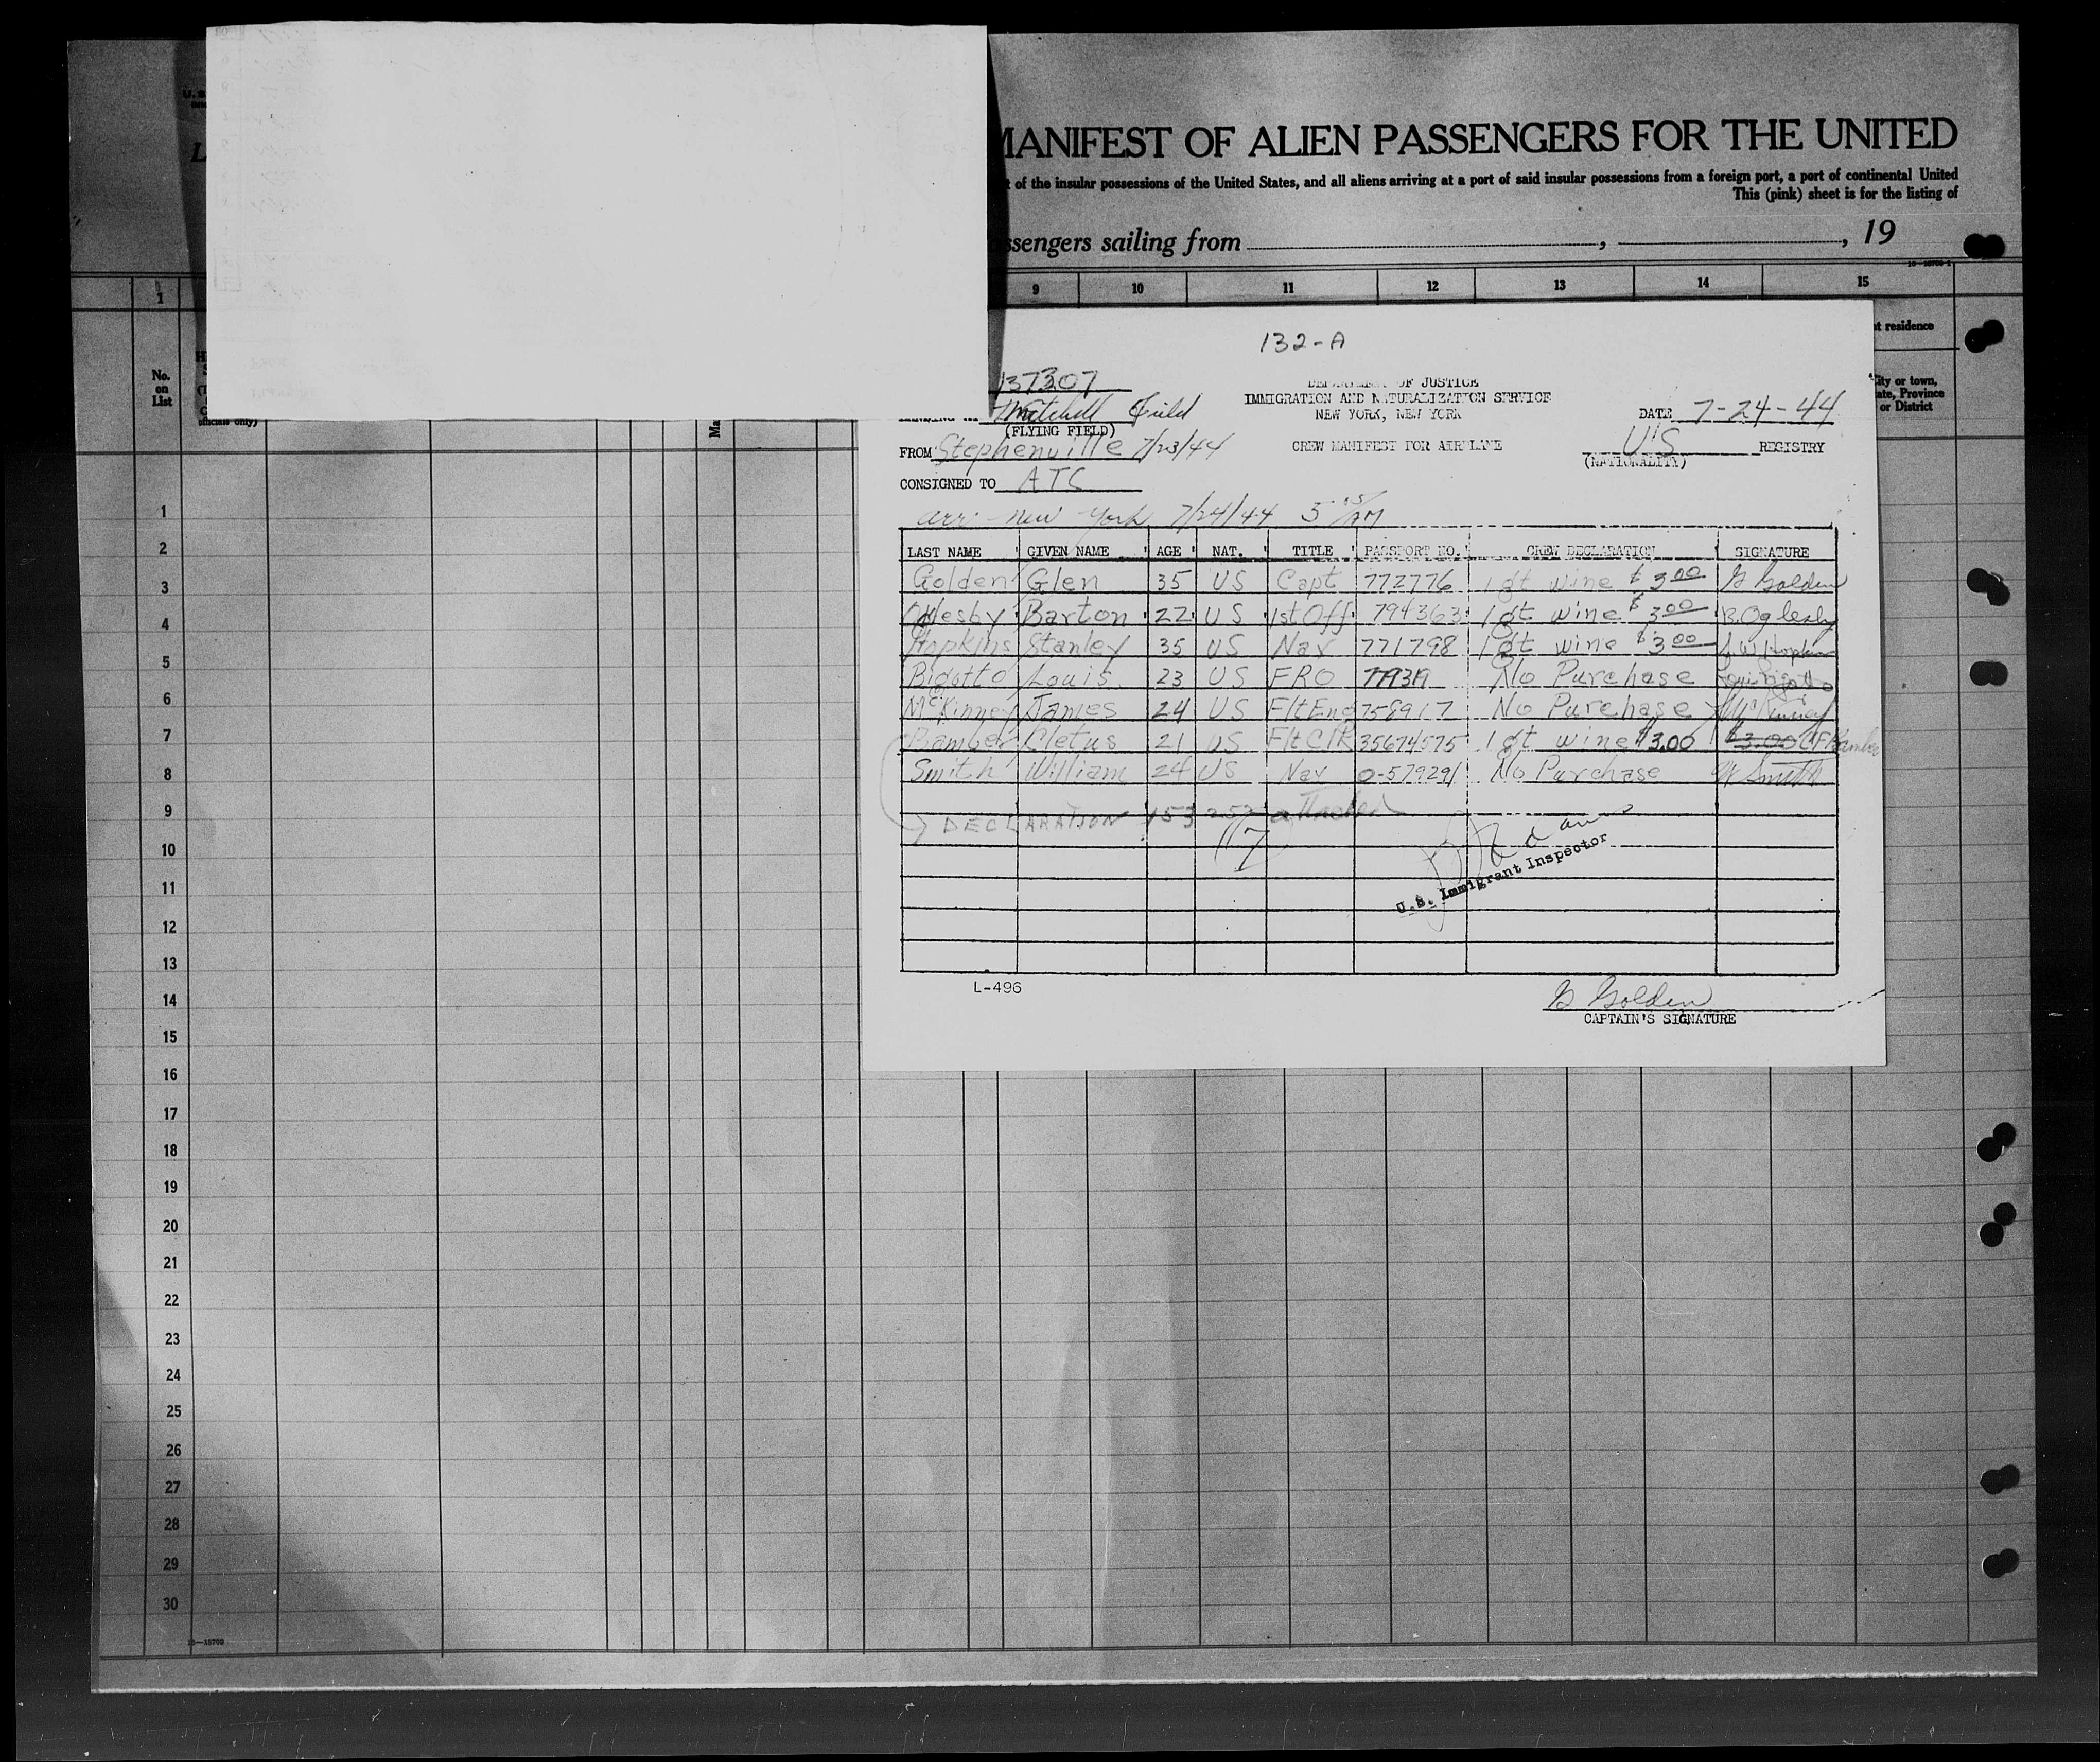 MANIFEST OF ALIEN PASSENGERS FOR THE UNITED
of the insular possessions of the United States, and all aliens arriving at a port of said insular possessions from a foreign port, a port of continental United
This (pink) sheet is for the listing of
ssengers sailing from , , 19
1 9 10 11 12 13 14 15
No. on List
officials only)
Ma
t residence
City or town, ate, Province or District
132-A
37307
DEPARTMENT OF JUSTICE
IMMIGRATION AND NATURALIZATION SERVICE
NEW YORK, NEW YORK
Mitchell Field
(FLYING FIELD)
DATE 7-24-44
FROM Stephenville 7/23/44
CREW MANIFEST FOR AIRPLANE
US REGISTRY
(NATIONALITY)
CONSIGNED TO ATC
arr. New York 7/24/44 5 15/AM
LAST NAME GIVEN NAME AGE NAT. TITLE PASSPORT NO. CREW DECLARATION SIGNATURE
Golden Glen 35 US Capt 772776 1 qt wine $3.00 G Golden
Oglesby Barton 22 US 1st Off 794363 1 qt wine $3.00 B. Oglesby
Hopkins Stanley 35 US Nav 771798 1 qt wine $3.00 S W Hopkins
Bigotto Louis 23 US FRO No Purchase Louis Bigotto
McKinney James 24 US Flt Eng 758917 No Purchase J McKinney
Bamber Cletus 21 US Flt Clk 35674575 1 qt wine $3.00 $3.00 C F Bamber
Smith William 24 US Nav 0-579291 No Purchase W Smith
DECLARATION attached
(17)
U.S. Immigrant Inspector
L-496
G Golden
CAPTAIN'S SIGNATURE
1
2
3
4
5
6
7
8
9
10
11
12
13
14
15
16
17
18
19
20
21
22
23
24
25
26
27
28
29
30
16—15709